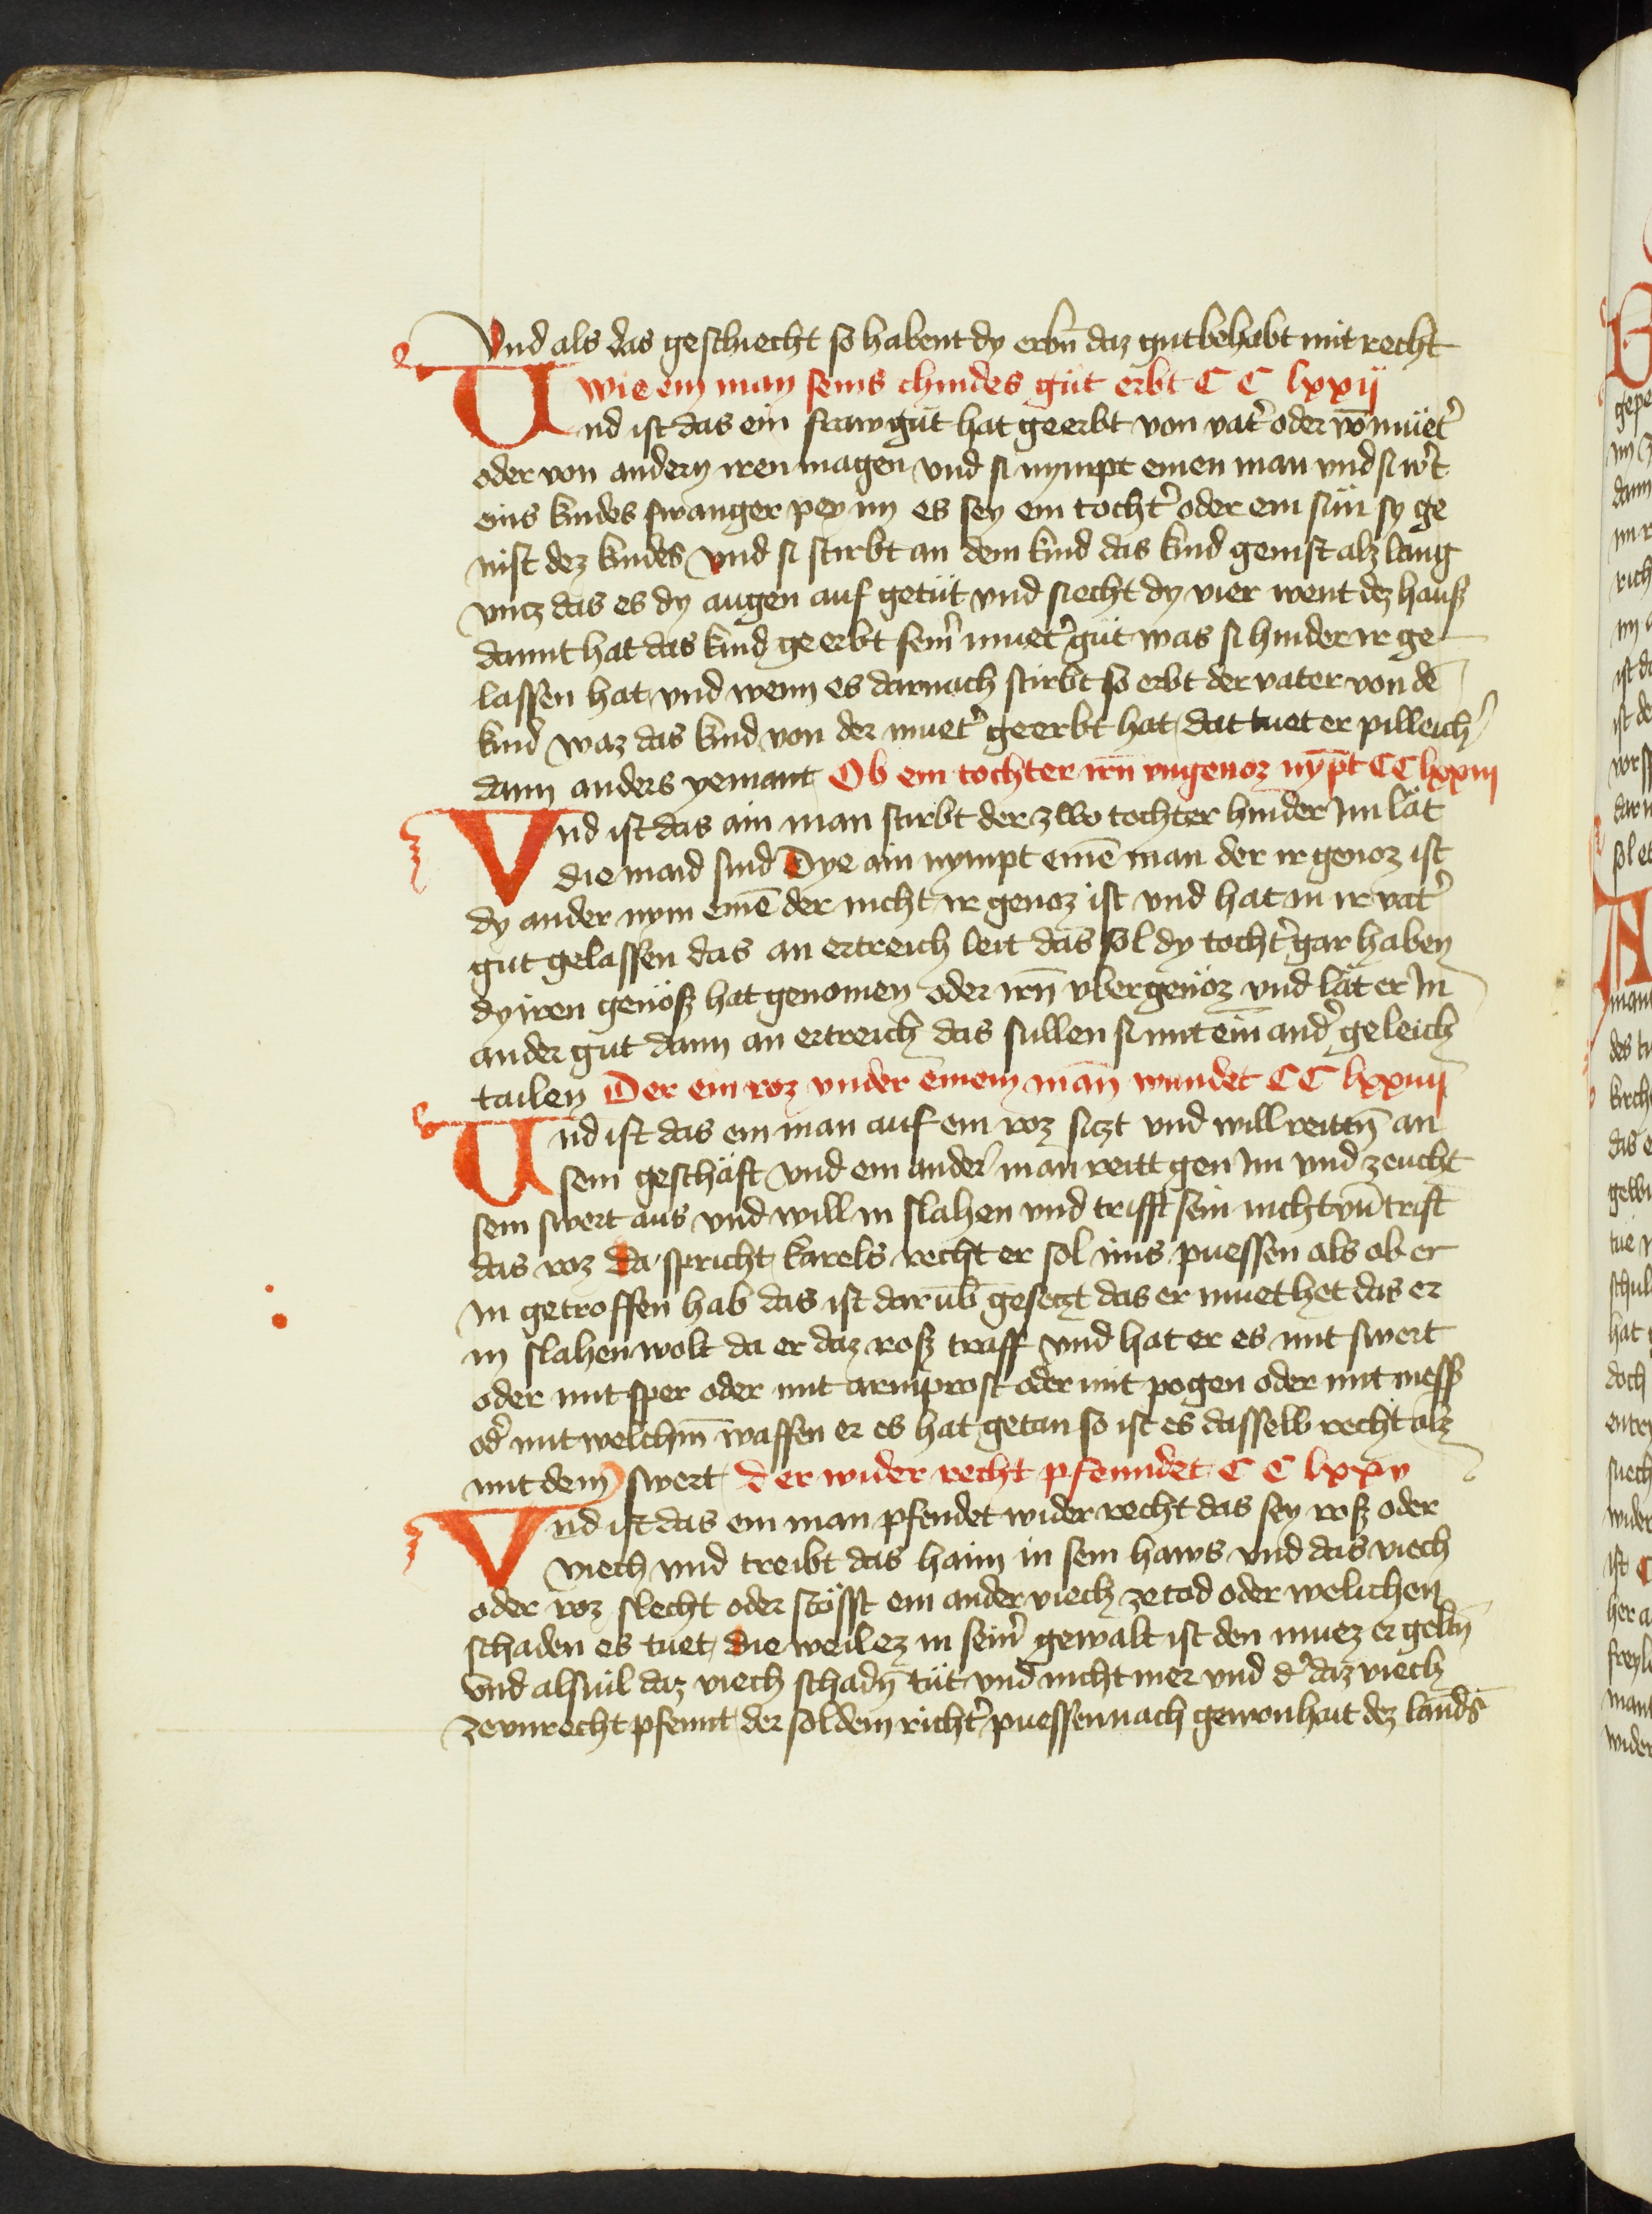 Vnd als das geschiecht so habent dy erbn̄ daz gut behabt mit recht
wie ein man seins chindes güt erbt CC lxxij
Und ist das ein fraw güt hat geerbt von vat̓ oder vō müet̓
oder von andern iren magen vnd si nympt einen man vnd si w̓t
eins kindes swanger pey im es sey ein tocht̓ oder ein sün sy ge
nist dez kindes vnd si stirbt an dem kind das kind genist alz lang
vntz das es dy augen auf getüt vnd siecht dy vier went dez hauß
damit hat das kind geerbt sein̓ muet̓ güt was si hinder ir ge
lassen hat vnd wenn es darnach stirbt so erbt der vater von dē
kind waz das kind von der muet̓ geerbt hat dat tuet er pilleich̓
dann anders yemant Ob ein tochter irn̄ vngenoz nȳpt CC lxxiij
Vnd ist das ain man stirbt der zwo tochter hinder Im lät
die maid sind Dye ain nympt einē man der ir genoz ist
dy ander nym einē der nicht ir genoz ist vnd hat in ir vat̓
gut gelassen das an ertreich leit das sol dy tocht̓ gar haben
dy iren genöß hat genomen oder irn̄ vbergenöz vnd lät er In
ander gut dann an ertreich das sullen si mit ein and̓ geleich
tailen Der ein roz vnder einem man wundet CC lxxiiij
Und ist das ein man auf ein roz siczt vnd will reittn̄ an
sein geschäft vnd ein ander man reitt gen Im vnd zeucht
sein swert aus vnd will in slahen vnd trifft sein nicht vn̄ trift
das roz da spricht karels recht er sol ims puessen als ob er
In getroffen hab das ist darūb gesetzt das er muet het das er
in slahen wolt da er daz roß traff vnd hat er es mit swert
oder mit sper oder mit armprost oder mit pogen oder mit mess̓
od̓ mit welchm̄ waffen er es hat getan so ist es dasselb recht alz
mit dem swert der wider recht pfenndet CC lxxv
Vnd ist das ein man pfendet wider recht das sey roß oder
viech vnd treibt das haim in sein haws vnd das viech
oder roz slecht oder stösst ein ander viech ze tod oder welichen
schaden es tuet die weil ez in sein̓ gewalt ist den muez er geltn̄
vnd als vil daz viech schadn̄ tüt vnd nicht mer vnd d̓ daz viech
ze vnrecht pfennt der sol dem richt̓ puessen nach gewonhait dez landß